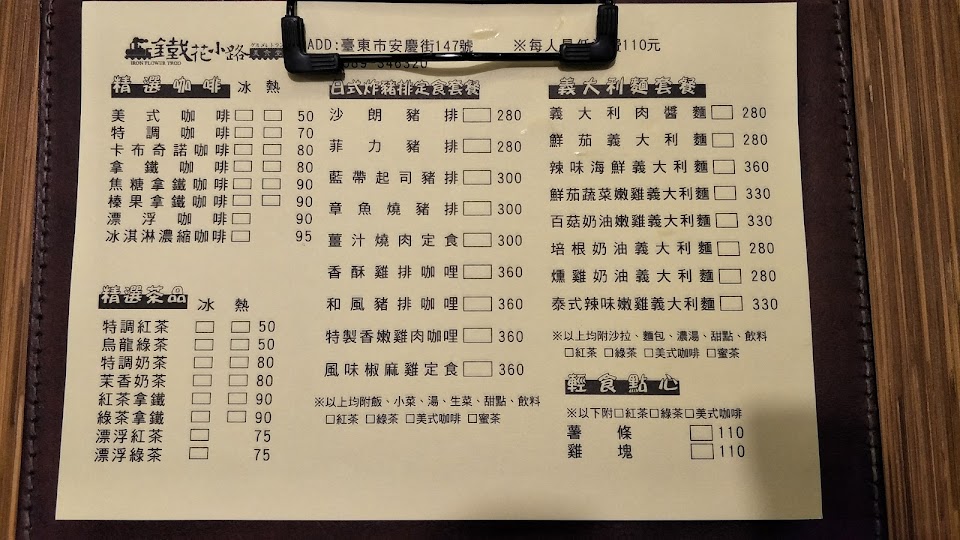 鐵花小路
IRON FLOWER TROD
ADD:臺東市安慶街147號 ※每人最低 費110元
089-346320
精選咖啡 冰 熱
美式咖啡 □ □ 50
特調咖啡 □ □ 70
卡布奇諾咖啡 □ □ 80
拿鐵咖啡 □ □ 80
焦糖拿鐵咖啡 □ □ 90
榛果拿鐵咖啡 □ □ 90
漂浮咖啡 □ 90
冰淇淋濃縮咖啡 □ 95
精選茶品 冰 熱
特調紅茶 □ □ 50
烏龍綠茶 □ □ 50
特調奶茶 □ □ 80
茉香奶茶 □ □ 80
紅茶拿鐵 □ □ 90
綠茶拿鐵 □ □ 90
漂浮紅茶 □ 75
漂浮綠茶 □ 75
日式炸豬排定食套餐
沙朗豬排 □ 280
菲力豬排 □ 280
藍帶起司豬排 □ 300
章魚燒豬排 □ 300
薑汁燒肉定食 □ 300
香酥雞排咖哩 □ 360
和風豬排咖哩 □ 360
特製香嫩雞肉咖哩 □ 360
風味椒麻雞定食 □ 360
※以上均附飯、小菜、湯、生菜、甜點、飲料
□紅茶 □綠茶 □美式咖啡 □蜜茶
義大利麵套餐
義大利肉醬麵 □ 280
鮮茄義大利麵 □ 280
辣味海鮮義大利麵 □ 360
鮮茄蔬菜嫩雞義大利麵 □ 330
百菇奶油嫩雞義大利麵 □ 330
培根奶油義大利麵 □ 280
燻雞奶油義大利麵 □ 280
泰式辣味嫩雞義大利麵 □ 330
※以上均附沙拉、麵包、濃湯、甜點、飲料
□紅茶 □綠茶 □美式咖啡 □蜜茶
輕食點心
※以下附□紅茶□綠茶□美式咖啡
薯條 □ 110
雞塊 □ 110